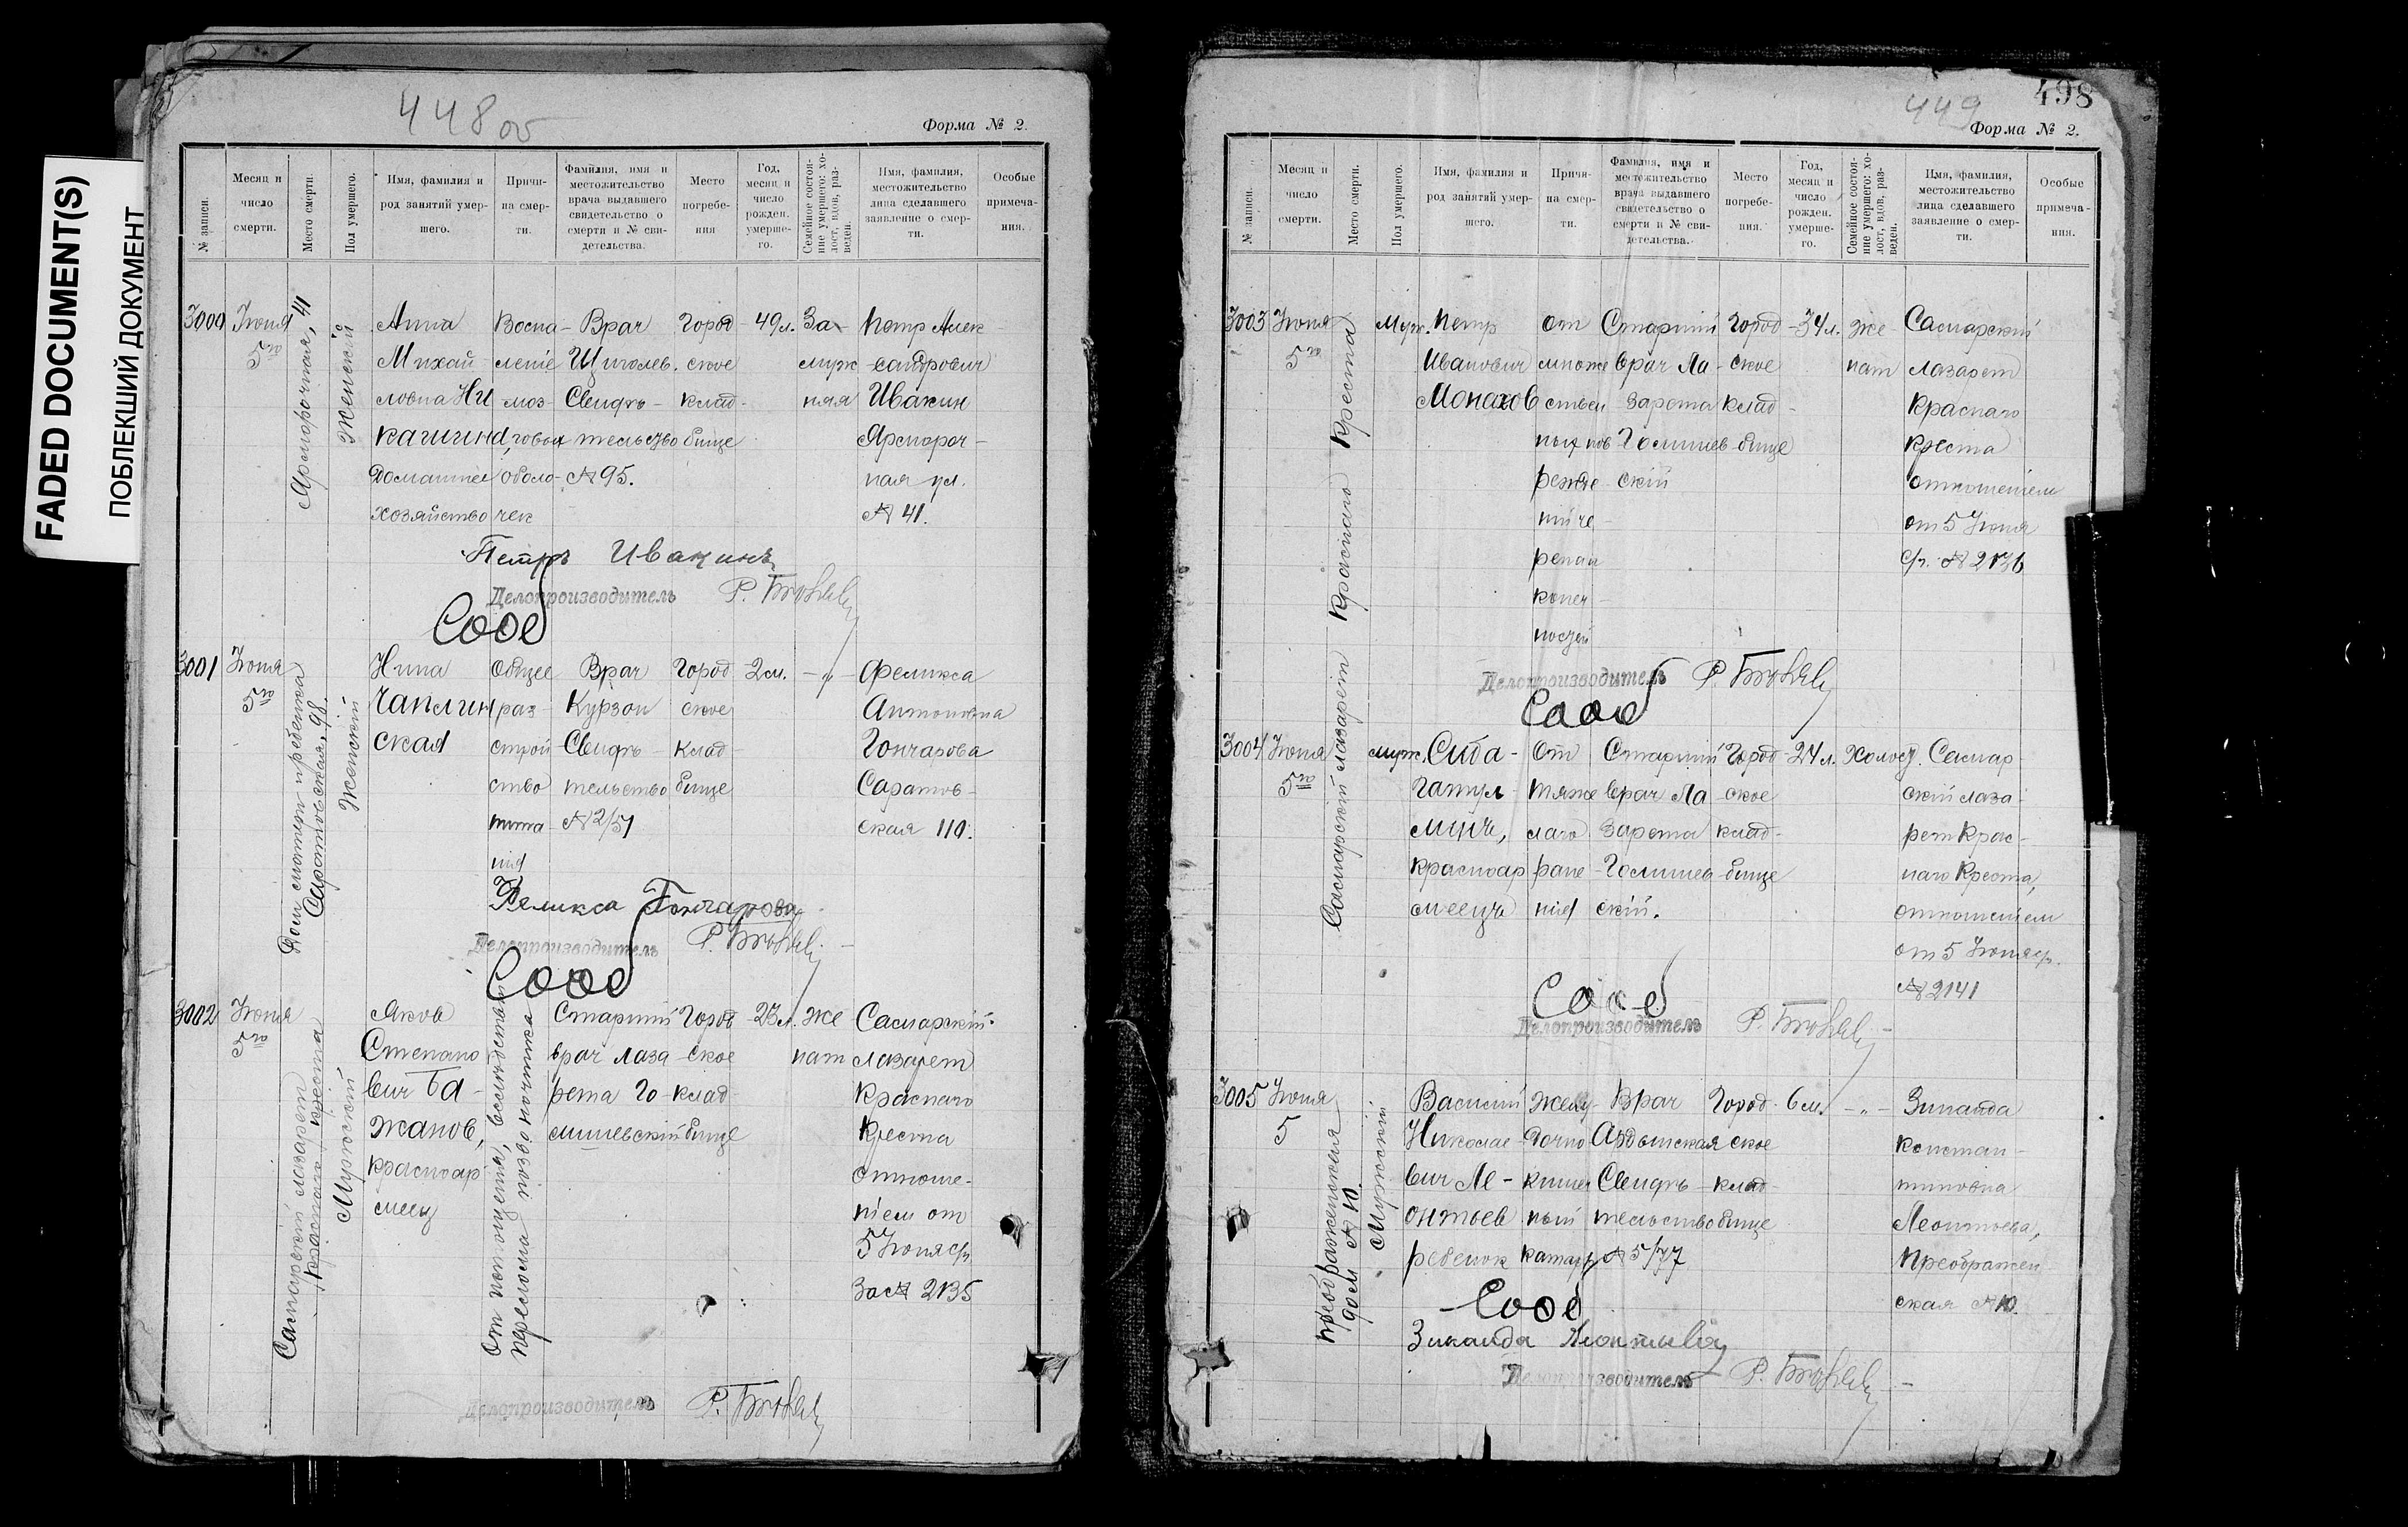 FADED DOCUMENT(S)
ПОБЛЕКШИЙ ДОКУМЕНТ
448 об
Форма № 2.
№ записи.
Месяц и число смерти.
Место смерти.
Пол умершего.
Имя, фамилия и род занятий умершего.
Причина смерти.
Фамилия, имя и местожительство врача выдавшего свидетельство о смерти и № свидетельства.
Место погребения
Год, месяц и число рожден. умершего.
Семейное состояние умершего: холост, вдов, разведен.
Имя, фамилия, местожительство лица сделавшего заявление о смерти.
Особые примечания.
3000
Июня
5го
Ярмарочная, 41
Женский
Анна
Михай
ловна Ни
кашина,
Домашнее
хозяйство
Воспа-
ление
моз-
говых
оболо-
чек
Врач
Щиголев.
Свидѣ-
тельство
№ 95.
Город
ское
клад-
бище
49 л.
За-
муж
няя
Петр Алек-
сандрович
Ивакин
Ярмароч-
ная ул.
№ 41.
Петръ Ивакинъ
Делопроизводитель
Сооб
3001
Июня
5го
Саратовская, 98.
Женский
Нина
Чаплин
ская
Общее
раз-
строй
ство
пита-
ния
Врач
Курзон
Свидѣ-
тельство
№ 2/51
Город
ское
клад-
бище
2 м.
— „ —
Феликса
Антоновна
Гончарова
Саратов-
ская 110.
Феликса Гончарова
Делопроизводитель
Сооб
3002
Июня
5го
Самарский лазарет
Краснаго Креста
Мужской
Яков
Степано
вич Ба-
жанов,
красноар
меец
перелома позвоночника
Старший
врач лаза
рета Го-
лишевский
Город
ское
клад-
бище
23 л.
Же
нат
Самарский
лазарет
Краснаго
Креста
отноше-
нием от
5 Июня с/г
За № 2135
Делопроизводитель
498
449
Форма № 2.
№ записи.
Месяц и число смерти.
Место смерти.
Пол умершего.
Имя, фамилия и род занятий умершего.
Причина смерти.
Фамилия, имя и местожительство врача выдавшего свидетельство о смерти и № свидетельства.
Место погребения.
Год, месяц и число рожден. умершего.
Семейное состояние умершего: холост, вдов, разведен.
Имя, фамилия, местожительство лица сделавшего заявление о смерти.
Особые примечания.
3003
Июня
5го
Самарский лазарет Краснаго Креста
Муж.
Петр
Иванович
Монахов
от
множе
ствен
ных пов
режде
ний че
репа и
конеч-
ностей
Старший
врач Ла-
зарета
Голишев-
ский
Город
ское
клад-
бище
34 л.
Же
нат
Самарский
лазарет
Краснаго
Креста
отношением
от 5 Июня
с/г. № 2136
Делопроизводитель
Сооб
3004
Июня
5го
муж.
Сиба-
гатул-
лин,
красноар
меец
От
тяже
лаго
ране-
ния
Старший
врач Ла
зарета
Голишев
ский.
Город
ское
клад-
бище
24 л.
Холост.
Самар
ский лаза-
рет Крас-
наго Креста,
отношением
от 5 Июня с/г.
№ 2141
Сооб
Делопроизводитель
3005
Июня
5
Преображенская
дом № 10.
Мужской
Василий
Николае-
вич Ле-
онтьев
ребенок
Желу-
дочно
кишеч
ный
катарр
Врач
Свидѣ-
тельство
№ 5/77
Город
ское
клад-
бище
6 м.
— „ —
Зинаида
Констан-
тиновна
Леонтьева,
Преображен
ская № 10.
Сооб
Зинаида Леонтьева
Делопроизводитель